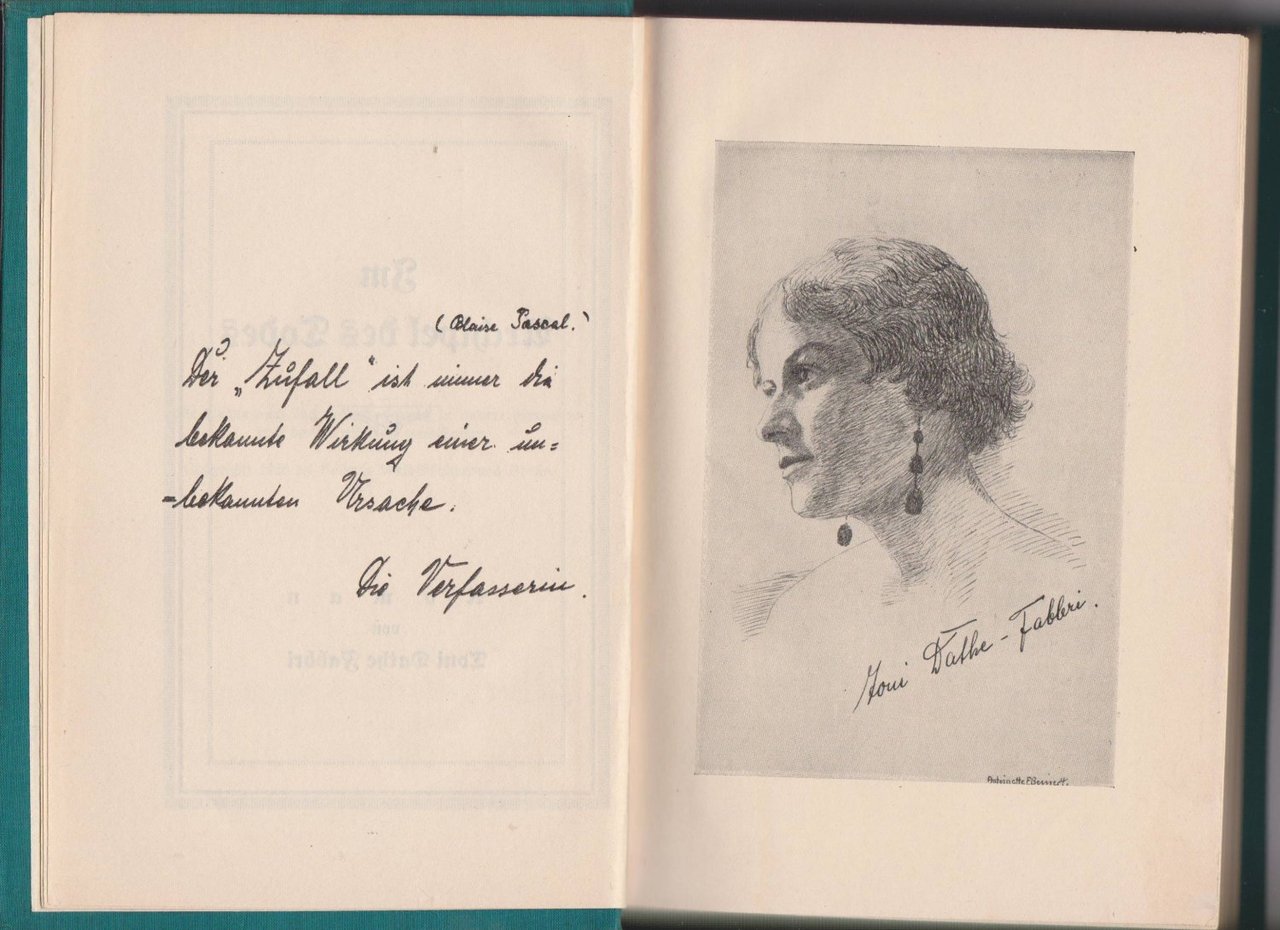 (Blaise Pascal.)
Der „Zufall“ ist immer die
bekannte Wirkung einer un=
=bekannten Ursache.
Die Verfasserin.
Toni Dathe-Fabbri.
Antoinette